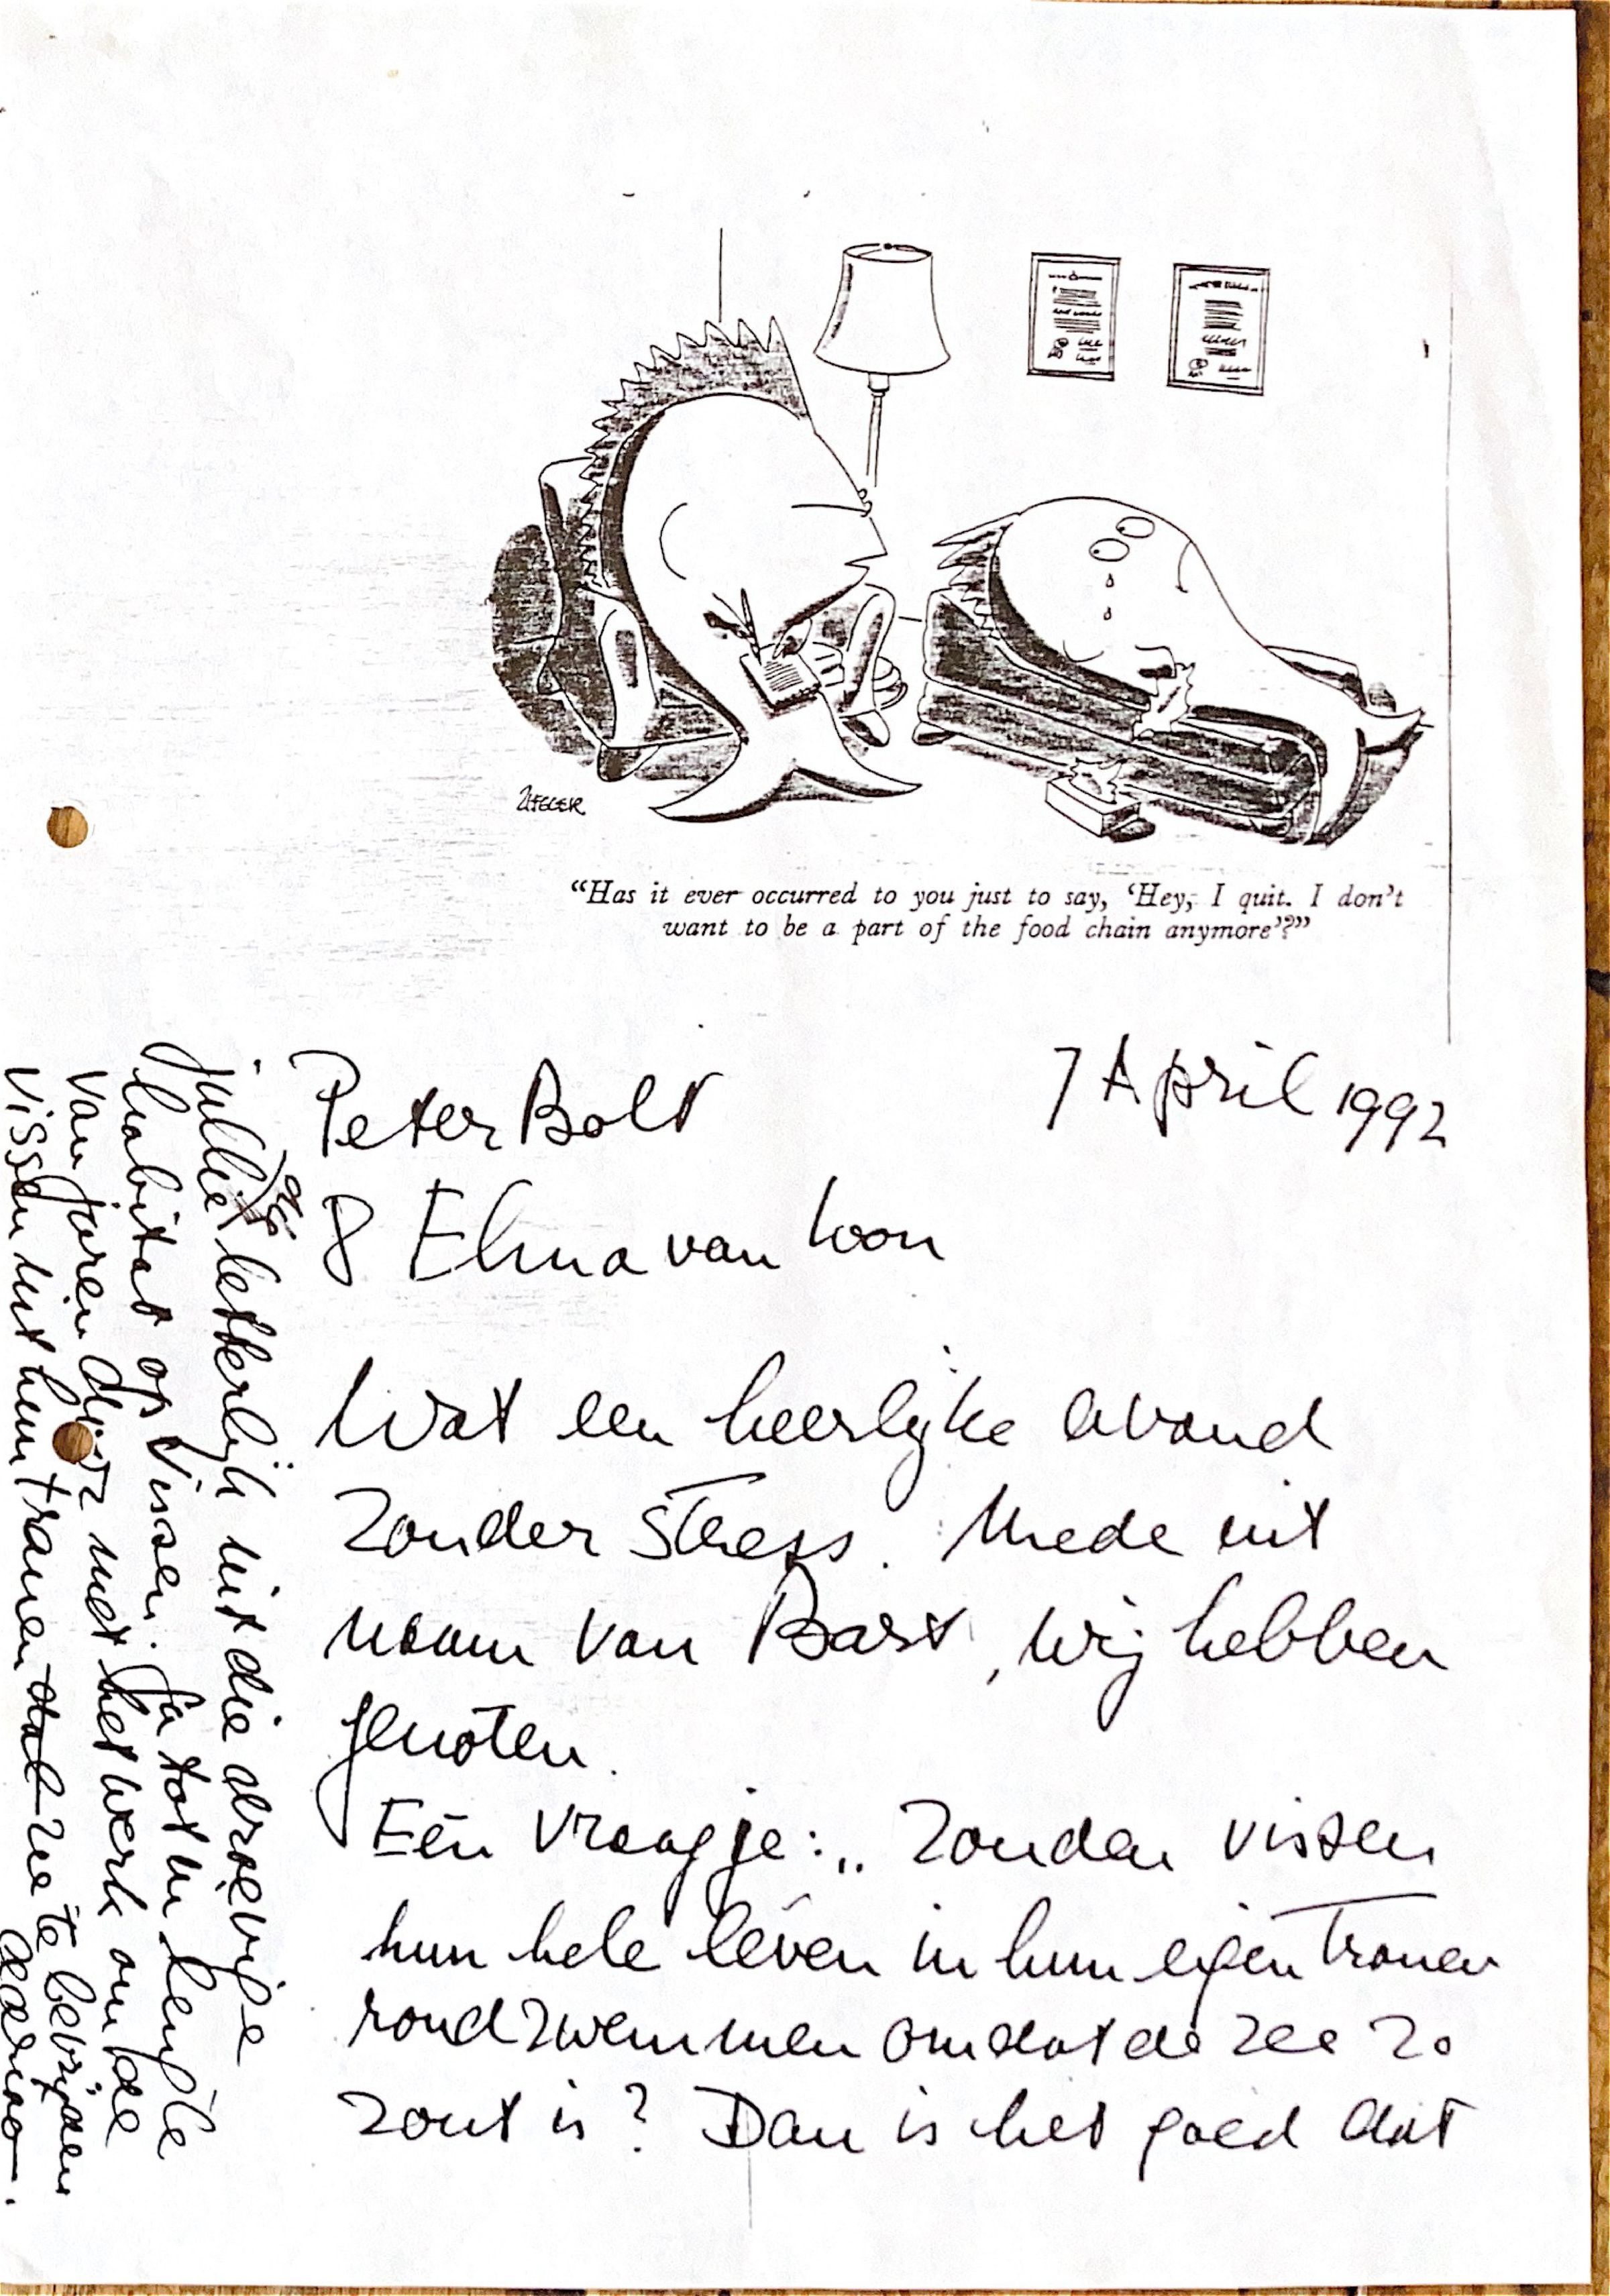 ZIEGLER
“Has it ever occurred to you just to say, ‘Hey, I quit. I don’t
want to be a part of the food chain anymore’?”
7 April 1992
Peter Bolt
& Elma van Loon
Wat een heerlijke avond
zonder stress. Mede uit
naam van Bart, wij hebben
genoten.
Eén vraagje: „Zouden vissen
hun hele leven in hun eigen tranen
rondzwemmen omdat de zee zo
zout is? Dan is het goed dat
jullie letterlijk uit die droevige
habitat op vissen. Ga tot in lengte
van jaren door met het werk om de
vissen uit hun tranendal-zee te bevrijden